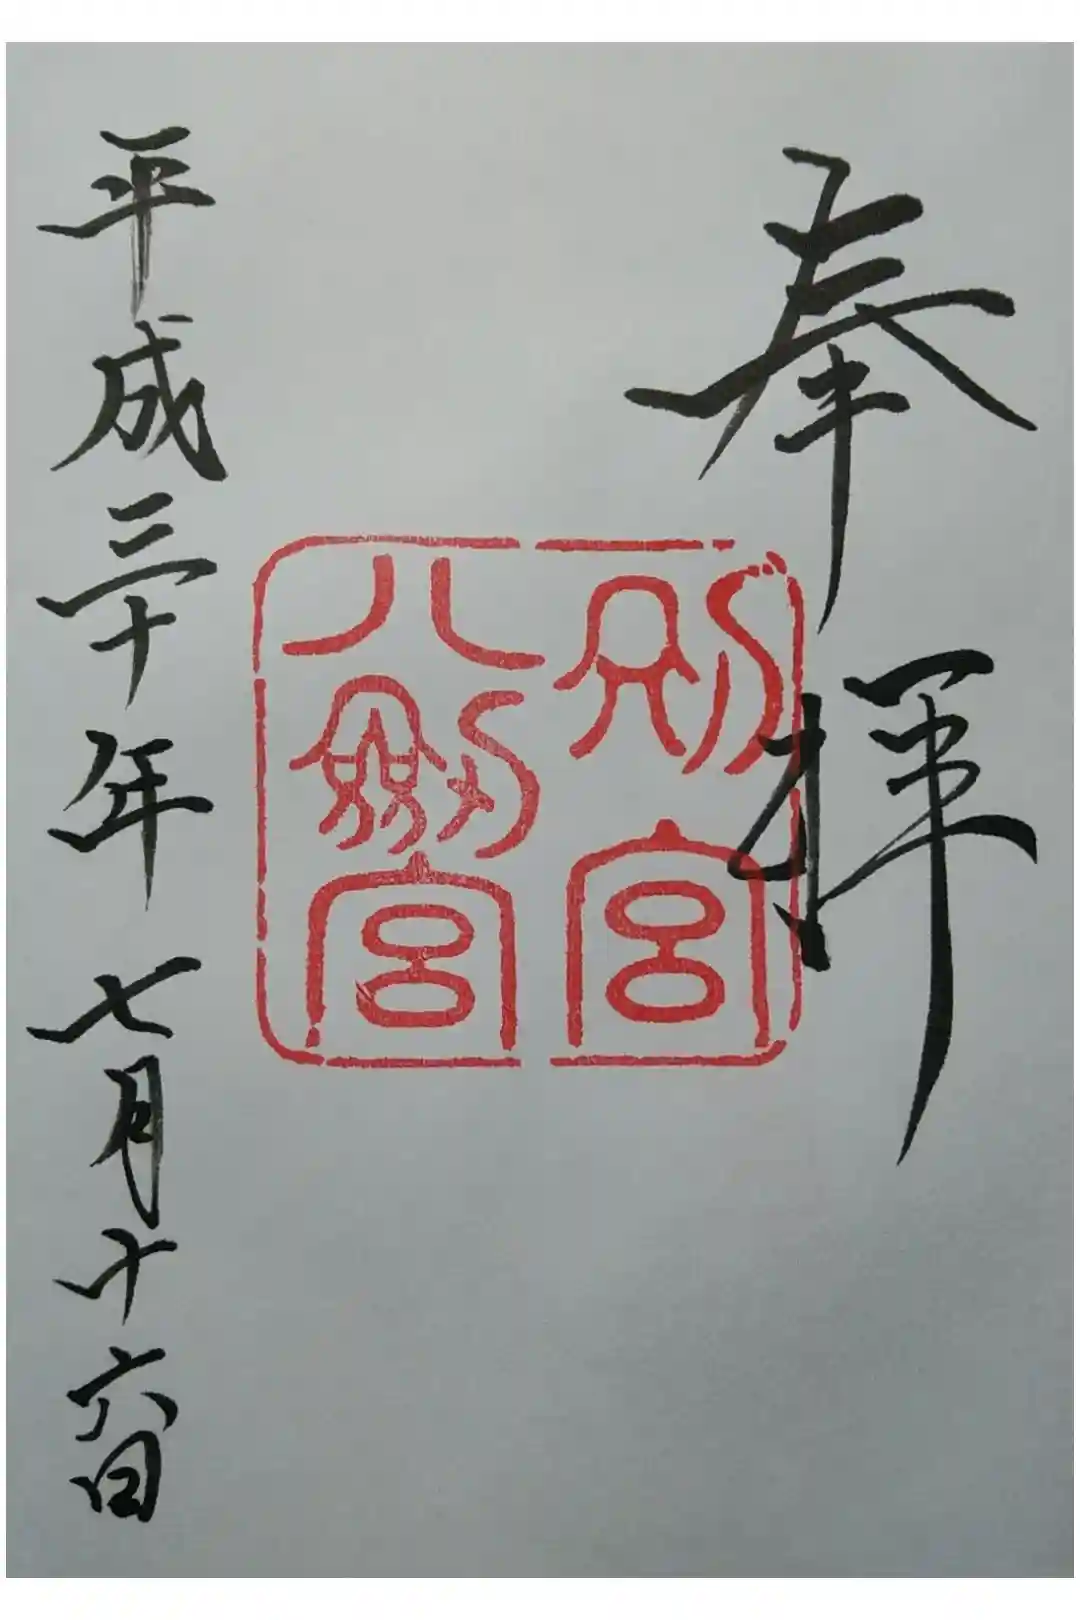 奉拝
別宮
八劔宮
平成三十年七月十六日